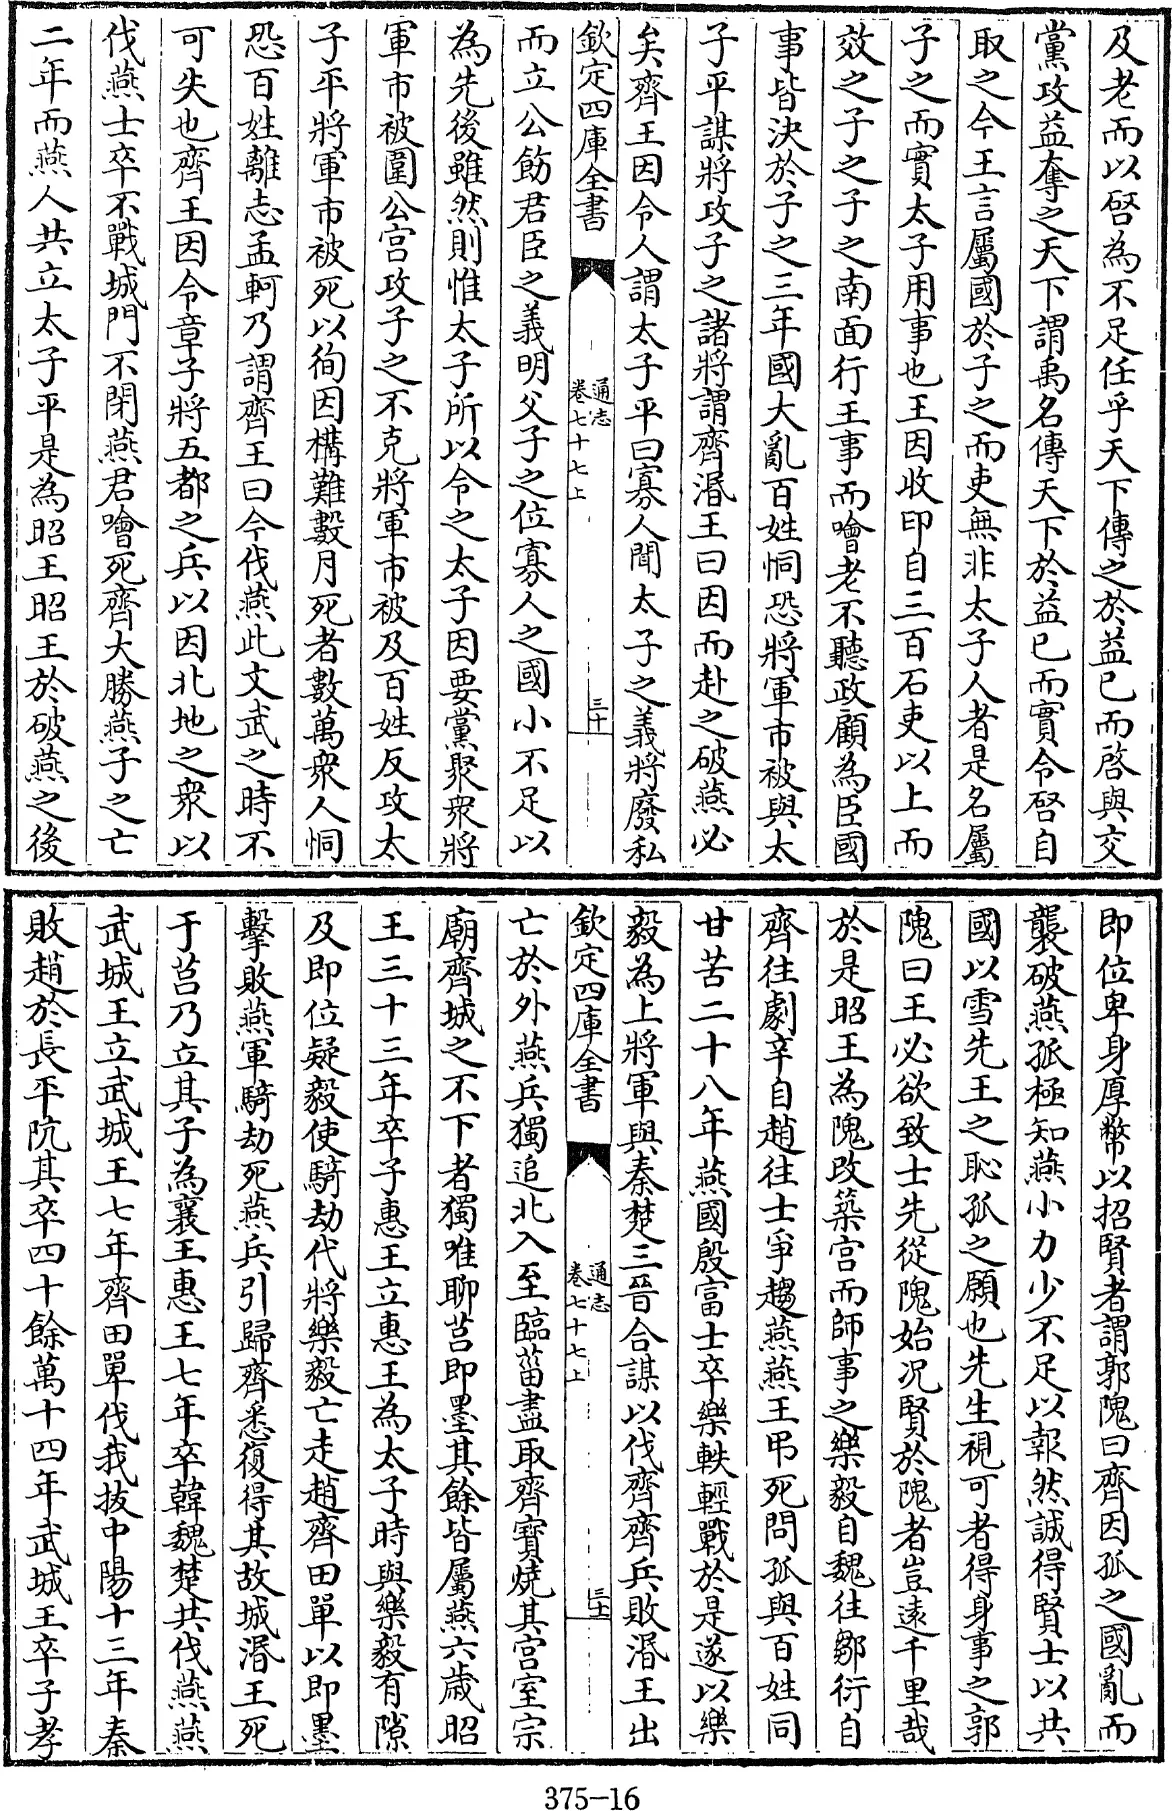 及老而以啓為不足任乎天下傳之於益已而啓與交
黨攻益奪之天下謂禹名傳天下於益已而實令啓自
取之今王言屬國於子之而吏無非太子人者是名屬
子之而實太子用事也王因收印自三百石吏以上而
效之子之子之南面行王事而噲老不聽政顧為臣國
事皆決於子之三年國大亂百姓恫恐將軍市被與太
子平謀將攻子之諸將謂齊湣王曰因而赴之破燕必
矣齊王因令人謂太子平曰寡人聞太子之義將廢私
欽定四庫全書
通志
卷七十七上
三十
而立公飭君臣之義明父子之位寡人之國小不足以
為先後雖然則惟太子所以令之太子因要黨聚衆將
軍市被圍公宮攻子之不克將軍市被及百姓反攻太
子平將軍市被死以徇因構難數月死者數萬衆人恫
恐百姓離志孟軻乃謂齊王曰今伐燕此文武之時不
可失也齊王因令章子將五都之兵以因北地之衆以
伐燕士卒不戰城門不閉燕君噲死齊大勝燕子之亡
二年而燕人共立太子平是為昭王昭王於破燕之後
即位卑身厚幣以招賢者謂郭隗曰齊因孤之國亂而
襲破燕孤極知燕小力少不足以報然誠得賢士以共
國以雪先王之恥孤之願也先生視可者得身事之郭
隗曰王必欲致士先從隗始况賢於隗者豈遠千里哉
於是昭王為隗改築宮而師事之樂毅自魏往鄒衍自
齊往劇辛自趙往士爭趨燕燕王弔死問孤與百姓同
甘苦二十八年燕國殷富士卒樂軼輕戰於是遂以樂
毅為上將軍與秦楚三晉合謀以伐齊齊兵敗湣王出
欽定四庫全書
通志
卷七十七上
三十一
亡於外燕兵獨追北入至臨菑盡取齊寶燒其宮室宗
廟齊城之不下者獨唯聊莒即墨其餘皆屬燕六歲昭
王三十三年卒子惠王立惠王為太子時與樂毅有隙
及即位疑毅使騎劫代將樂毅亡走趙齊田單以即墨
擊敗燕軍騎劫死燕兵引歸齊悉復得其故城湣王死
于莒乃立其子為襄王惠王七年卒韓魏楚共伐燕燕
武城王立武城王七年齊田單伐我拔中陽十三年秦
敗趙於長平阬其卒四十餘萬十四年武城王卒子孝
375-16